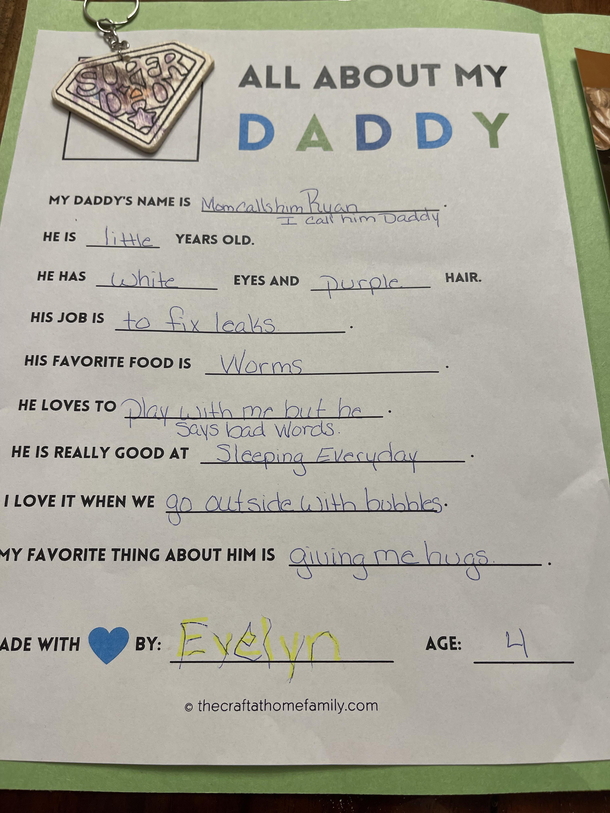 SUPER
DAD
ALL ABOUT MY
DADDY
MY DADDY'S NAME IS Mom calls him Ryan.
I call him Daddy
HE IS little YEARS OLD.
HE HAS white EYES AND purple HAIR.
HIS JOB IS to fix leaks.
HIS FAVORITE FOOD IS Worms.
HE LOVES TO play with me but he.
says bad words.
HE IS REALLY GOOD AT Sleeping Everyday.
I LOVE IT WHEN WE go outside with bubbles.
MY FAVORITE THING ABOUT HIM IS giving me hugs.
ADE WITH BY: Evelyn AGE: 4
© thecraftathomefamily.com